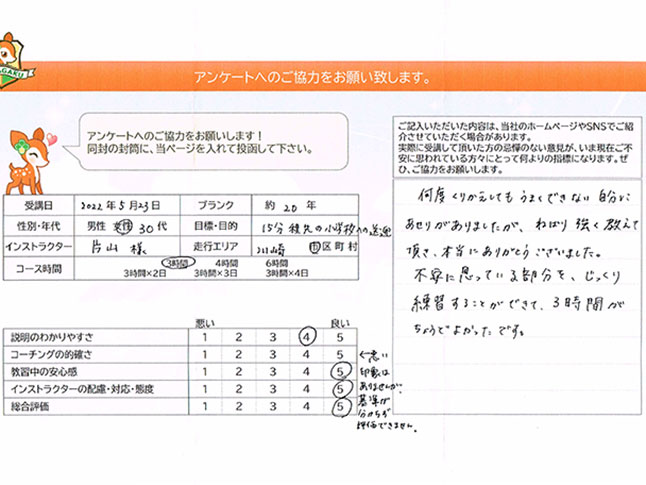 アンケートへのご協力をお願い致します。
アンケートへのご協力をお願いします!
同封の封筒に、当ページを入れて投函して下さい。
ご記入いただいた内容は、当社のホームページやSNSでご紹
介させていただく場合があります。
実際に受講して頂いた方の忌憚のない意見が、いま現在ご不
安に思われている方々にとって何よりの指標になります。ぜ
ひ、ご協力をお願いします。
受講日 2022年5月23日 ブランク 約20年
性別・年代 男性 女性 30代 目標・目的 15分程先の小学校への送迎
インストラクター 片山様 走行エリア 川崎 市区町村
コース時間 3時間 4時間 6時間
3時間×2日 3時間×3日 3時間×4日
悪い 良い
説明のわかりやすさ 1 2 3 4 5
コーチングの的確さ 1 2 3 4 5
教習中の安心感 1 2 3 4 5
インストラクターの配慮・対応・態度 1 2 3 4 5
総合評価 1 2 3 4 5
←悪い
印象は
ありませんが、
基準が
分からず
評価できません。
何度くりかえしてもうまくできない自分に
あせりがありましたが、ねばり強く教えて
頂き、本当にありがとうございました。
不安に思っている部分を、じっくり
練習することができて、3時間が
ちょうどよかったです。